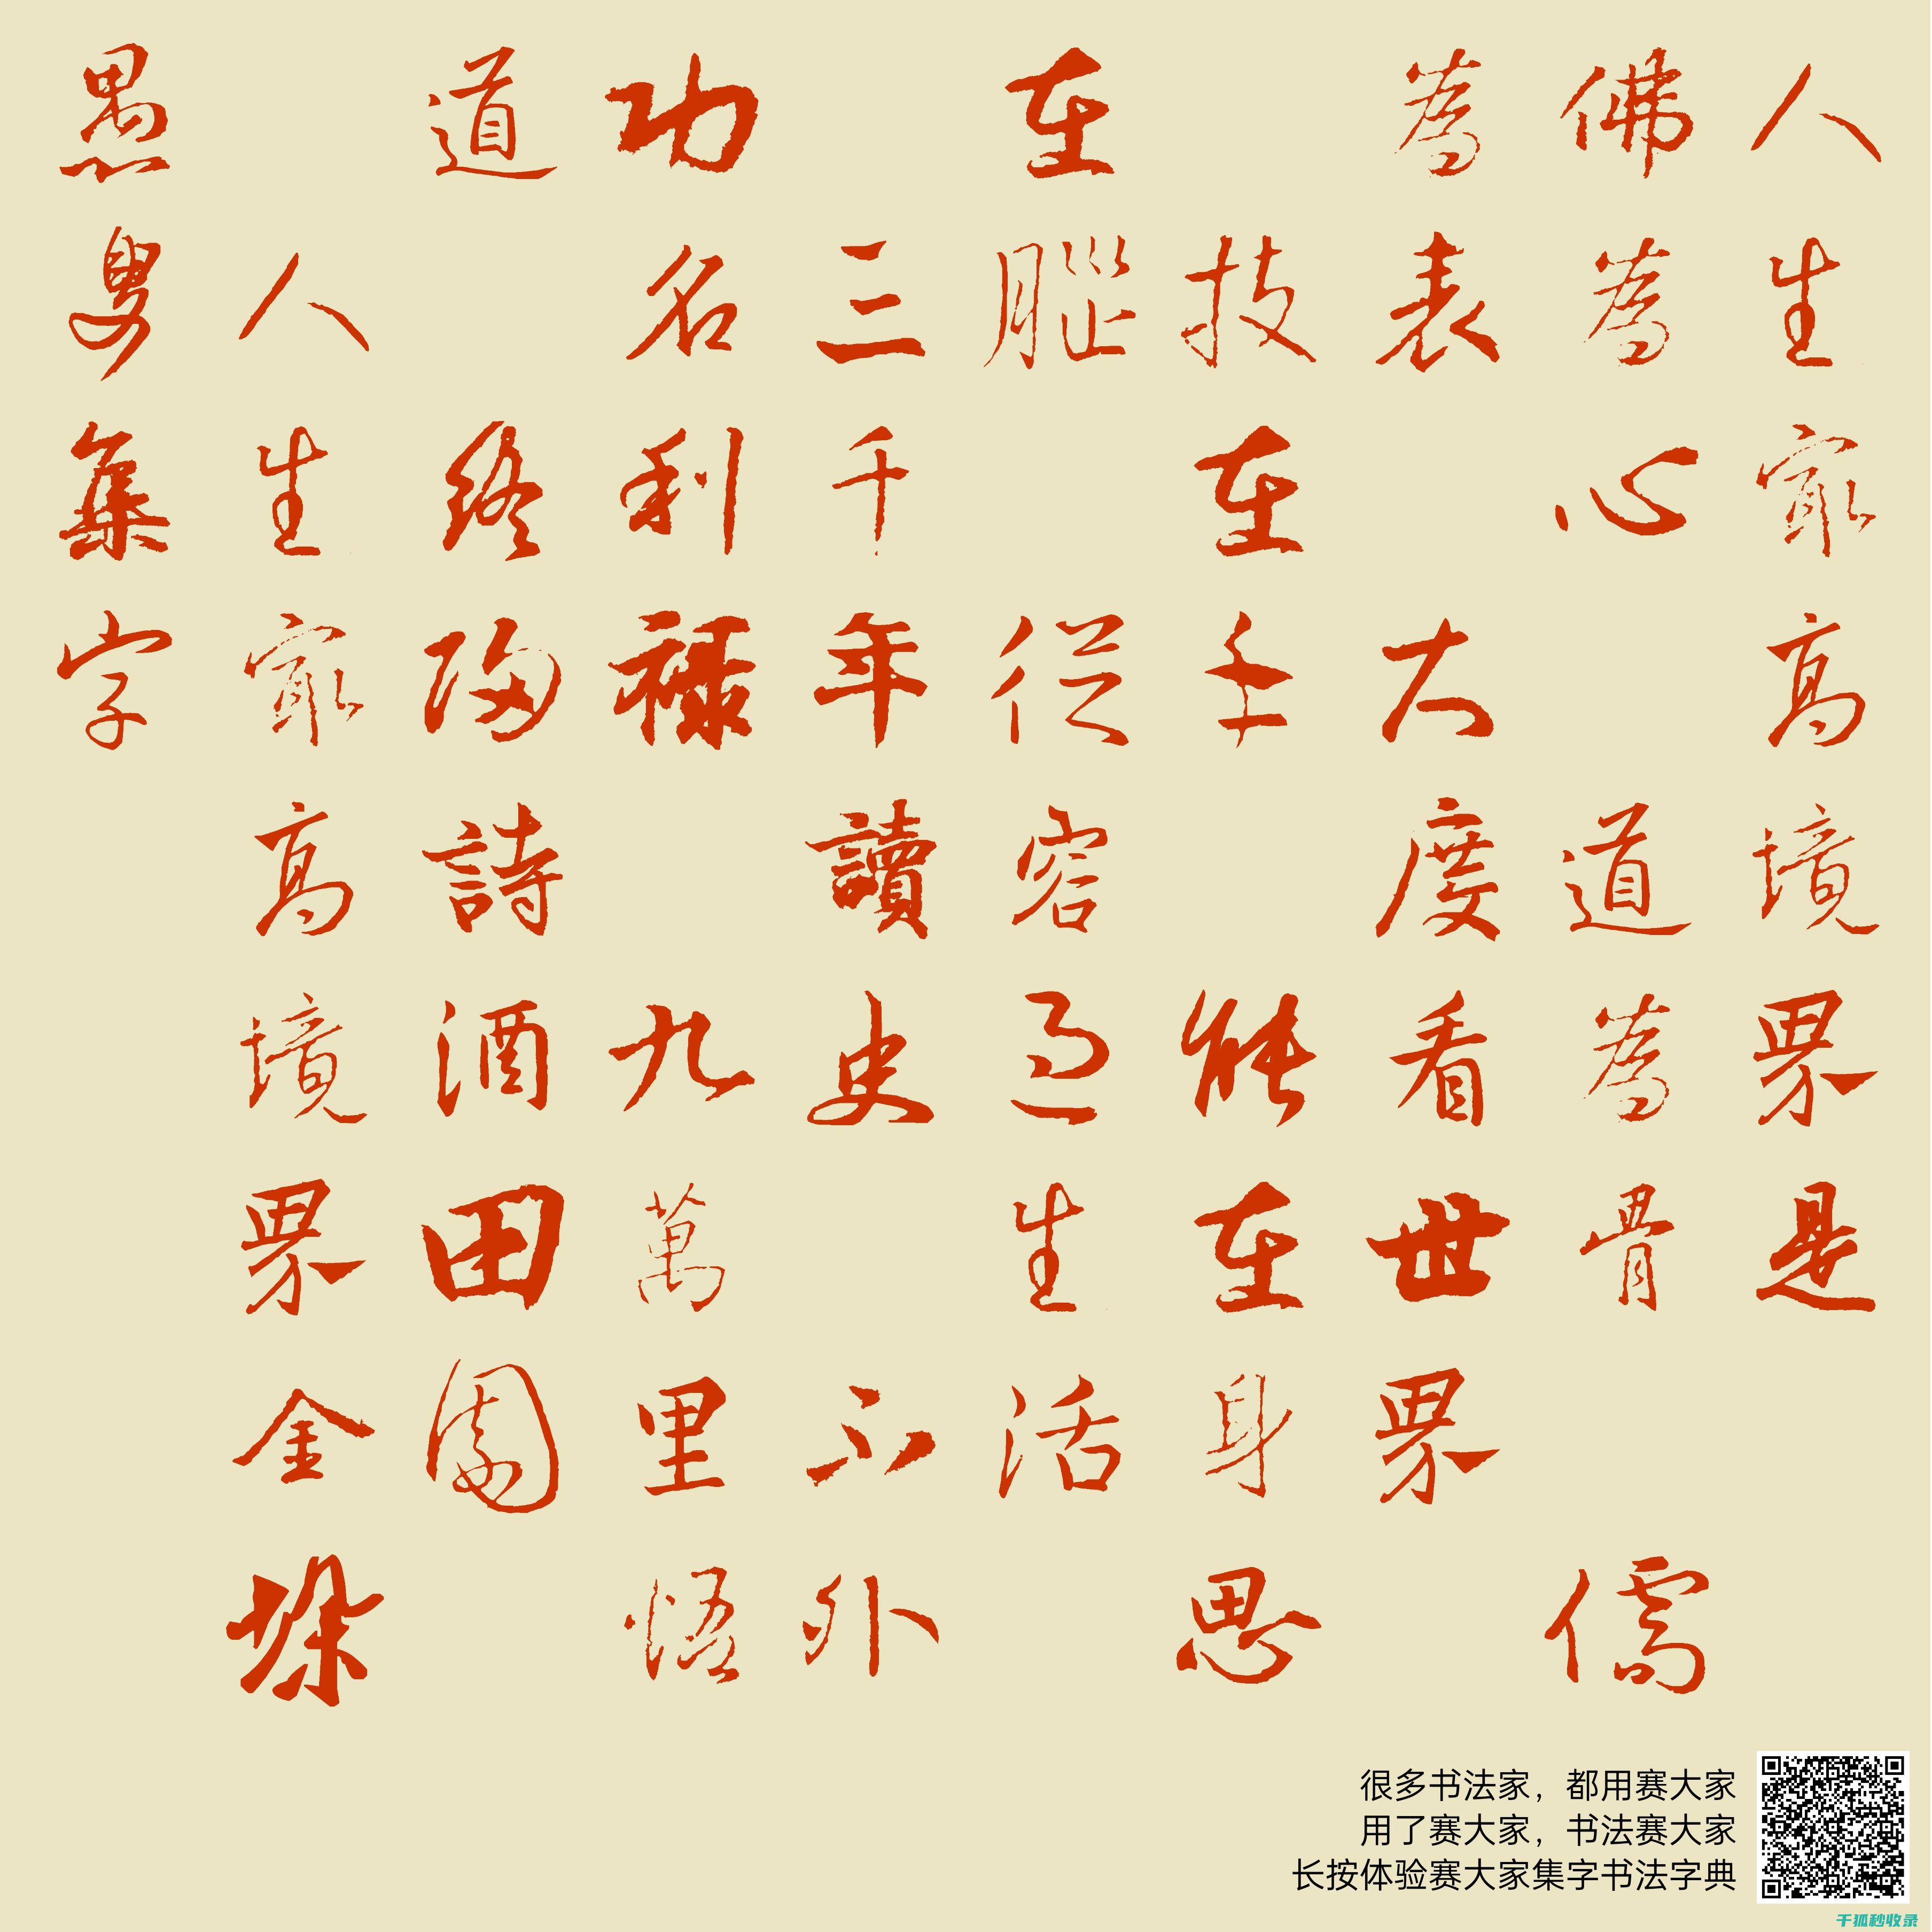 人生最高境界是
佛為心 道為骨 儒
為表 大度看世界
技在手 能在身 思
在腦 從容過生活
三千年讀史 不外
功名利祿 九萬里悟
道 終歸詩酒田園
人生最高境界金垛
愚叟集字
很多书法家，都用赛大家
用了赛大家，书法赛大家
长按体验赛大家集字书法字典
千狐秒收录